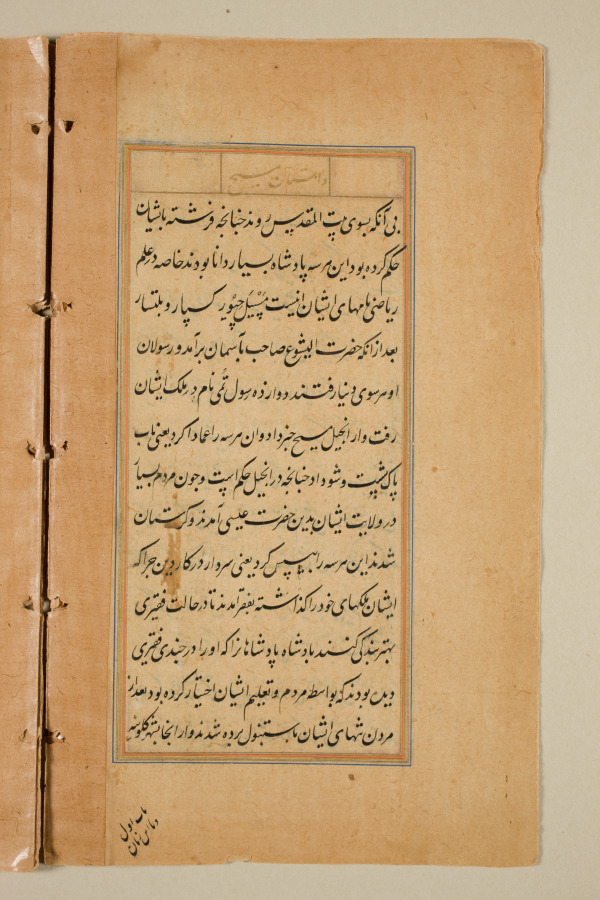 داستان مسیح
بی آنکه بسوی بیت المقدس روند چنانچه فرشته بایشان
حکم کرده بود این هر سه پادشاه بسیار دانا بودند خاصه در علم
ریاضی نامهای ایشان اینست مسیل چپور کسپار و بلتسار
بعد از آنکه حضرت الیشوع صاحب بآسمان برآمد و رسولان
او هر سوی دنیا رفتند دوازده رسول تُمی نام در ملک ایشان
رفت و از انجیل مسیح خبر داد و آن هر سه را عماد کرد یعنی باب
پاک شست و شو داد چنانچه در انجیل حکم است و چون مردم بسیار
در ولایت ایشان بدین حضرت عیسی آمدند و کرستان
شدند این هر سه را بیسپس کرد یعنی سردار در کار دین چرا که
ایشان ملکهای خود را گذاشته بفقر آمدند تا در حالت فقیری
بهتر بندگی کنند بادشاه پادشاهانرا که او را در چندی فقیری
دیده بودند که بواسطه مردم و تعلیم ایشان اختیار کرده بود بعد از
مردن تنهای ایشان باستنبول برده شدند و از آنجا بشهر کلونیه
باب اول